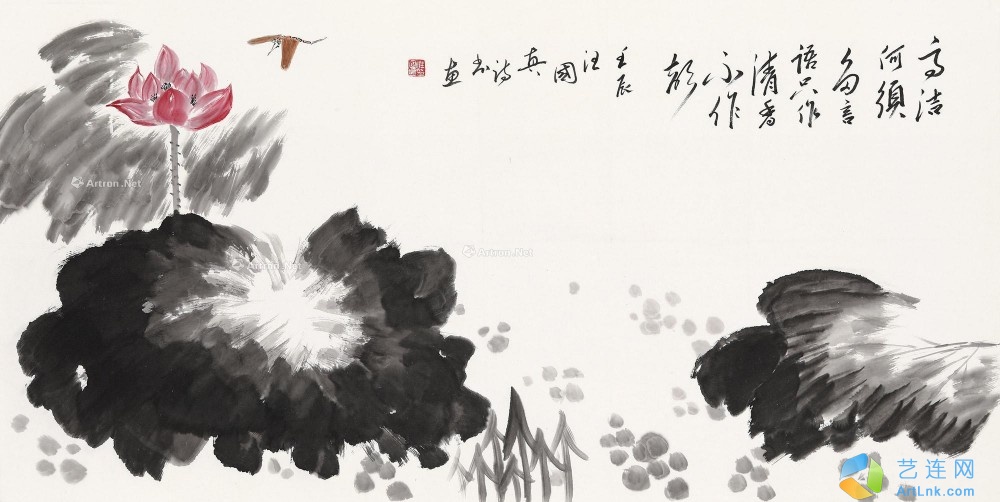 高洁
何須
多言
语只作
清香
不作
壬辰
汪
國
真
诗
书
画
Artron.Net
Artron.Net
Artron.Net
艺连网
ArtLnk.com